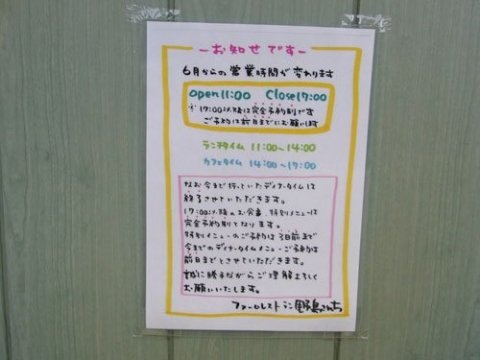 ーお知らせですー
6月からの営業時間が変わります
open 11:00 Close 17:00
※17:00以降は完全予約制です
ご予約は前日までにお願いします
ランチタイム 11:00~14:00
カフェタイム 14:00~17:00
なお今まで行っていたディナータイムは
終了させていただきます。
17:00以降のお食事、特別メニューは
完全予約制となります。
特別メニューのご予約は3日前まで
今までのディナータイムメニューご予約は
前日までとさせていただきます。
誠に勝手ながらご理解よろしく
お願いいたします。
ファームレストラン野島さんち